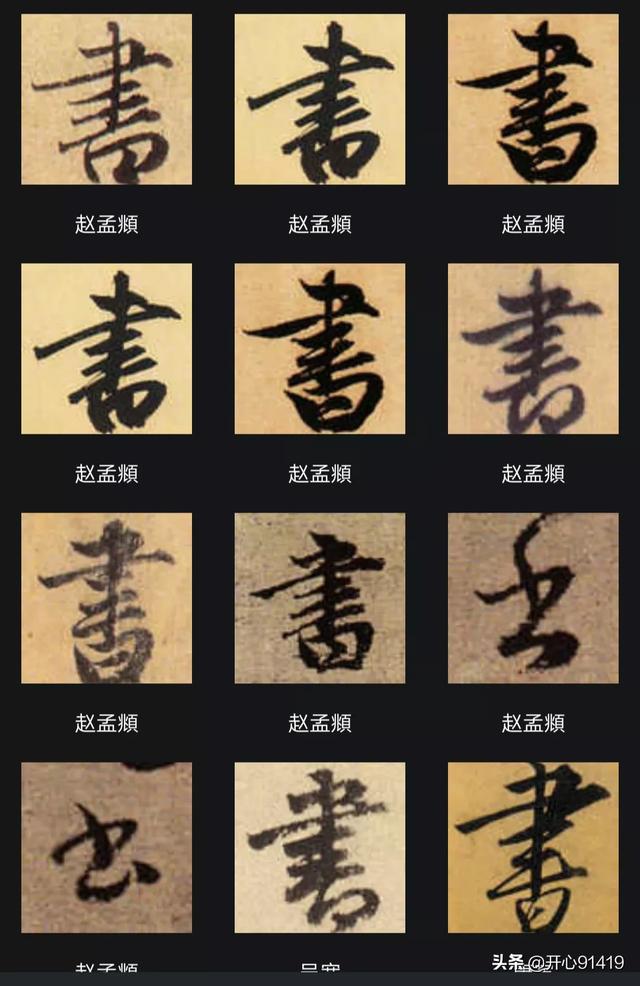 書 書 書
赵孟頫 赵孟頫 赵孟頫
書 書 書
赵孟頫 赵孟頫 赵孟頫
書 書 书
赵孟頫 赵孟頫 赵孟頫
书 書 書
赵孟頫
头条 @开心91419